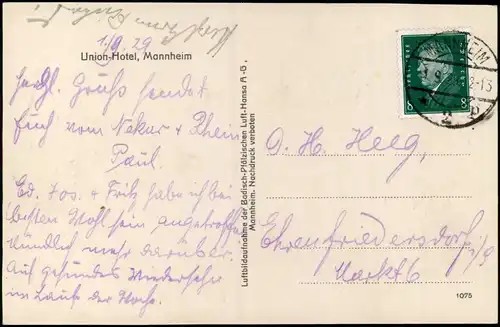 1/9. 29
Union-Hotel, Mannheim
Herzl. Gruß sendet
Euch vom Nekar + Rhein
Paul.
Ed. Jos. + Fritz habe ich bei
besten Wohl sein angetroffen
Mündlich mehr darüber.
Auf gesundes Wiedersehn
im Laufe der Woche.
Luftbildaufnahme der Badisch-Pfälzischen Luft-Hansa A-G,
Mannheim. Nachdruck verboten
8 8
HEIM
O. H. Heeg,
Ehrenfriedersdorf i/S
Markt 6
1075